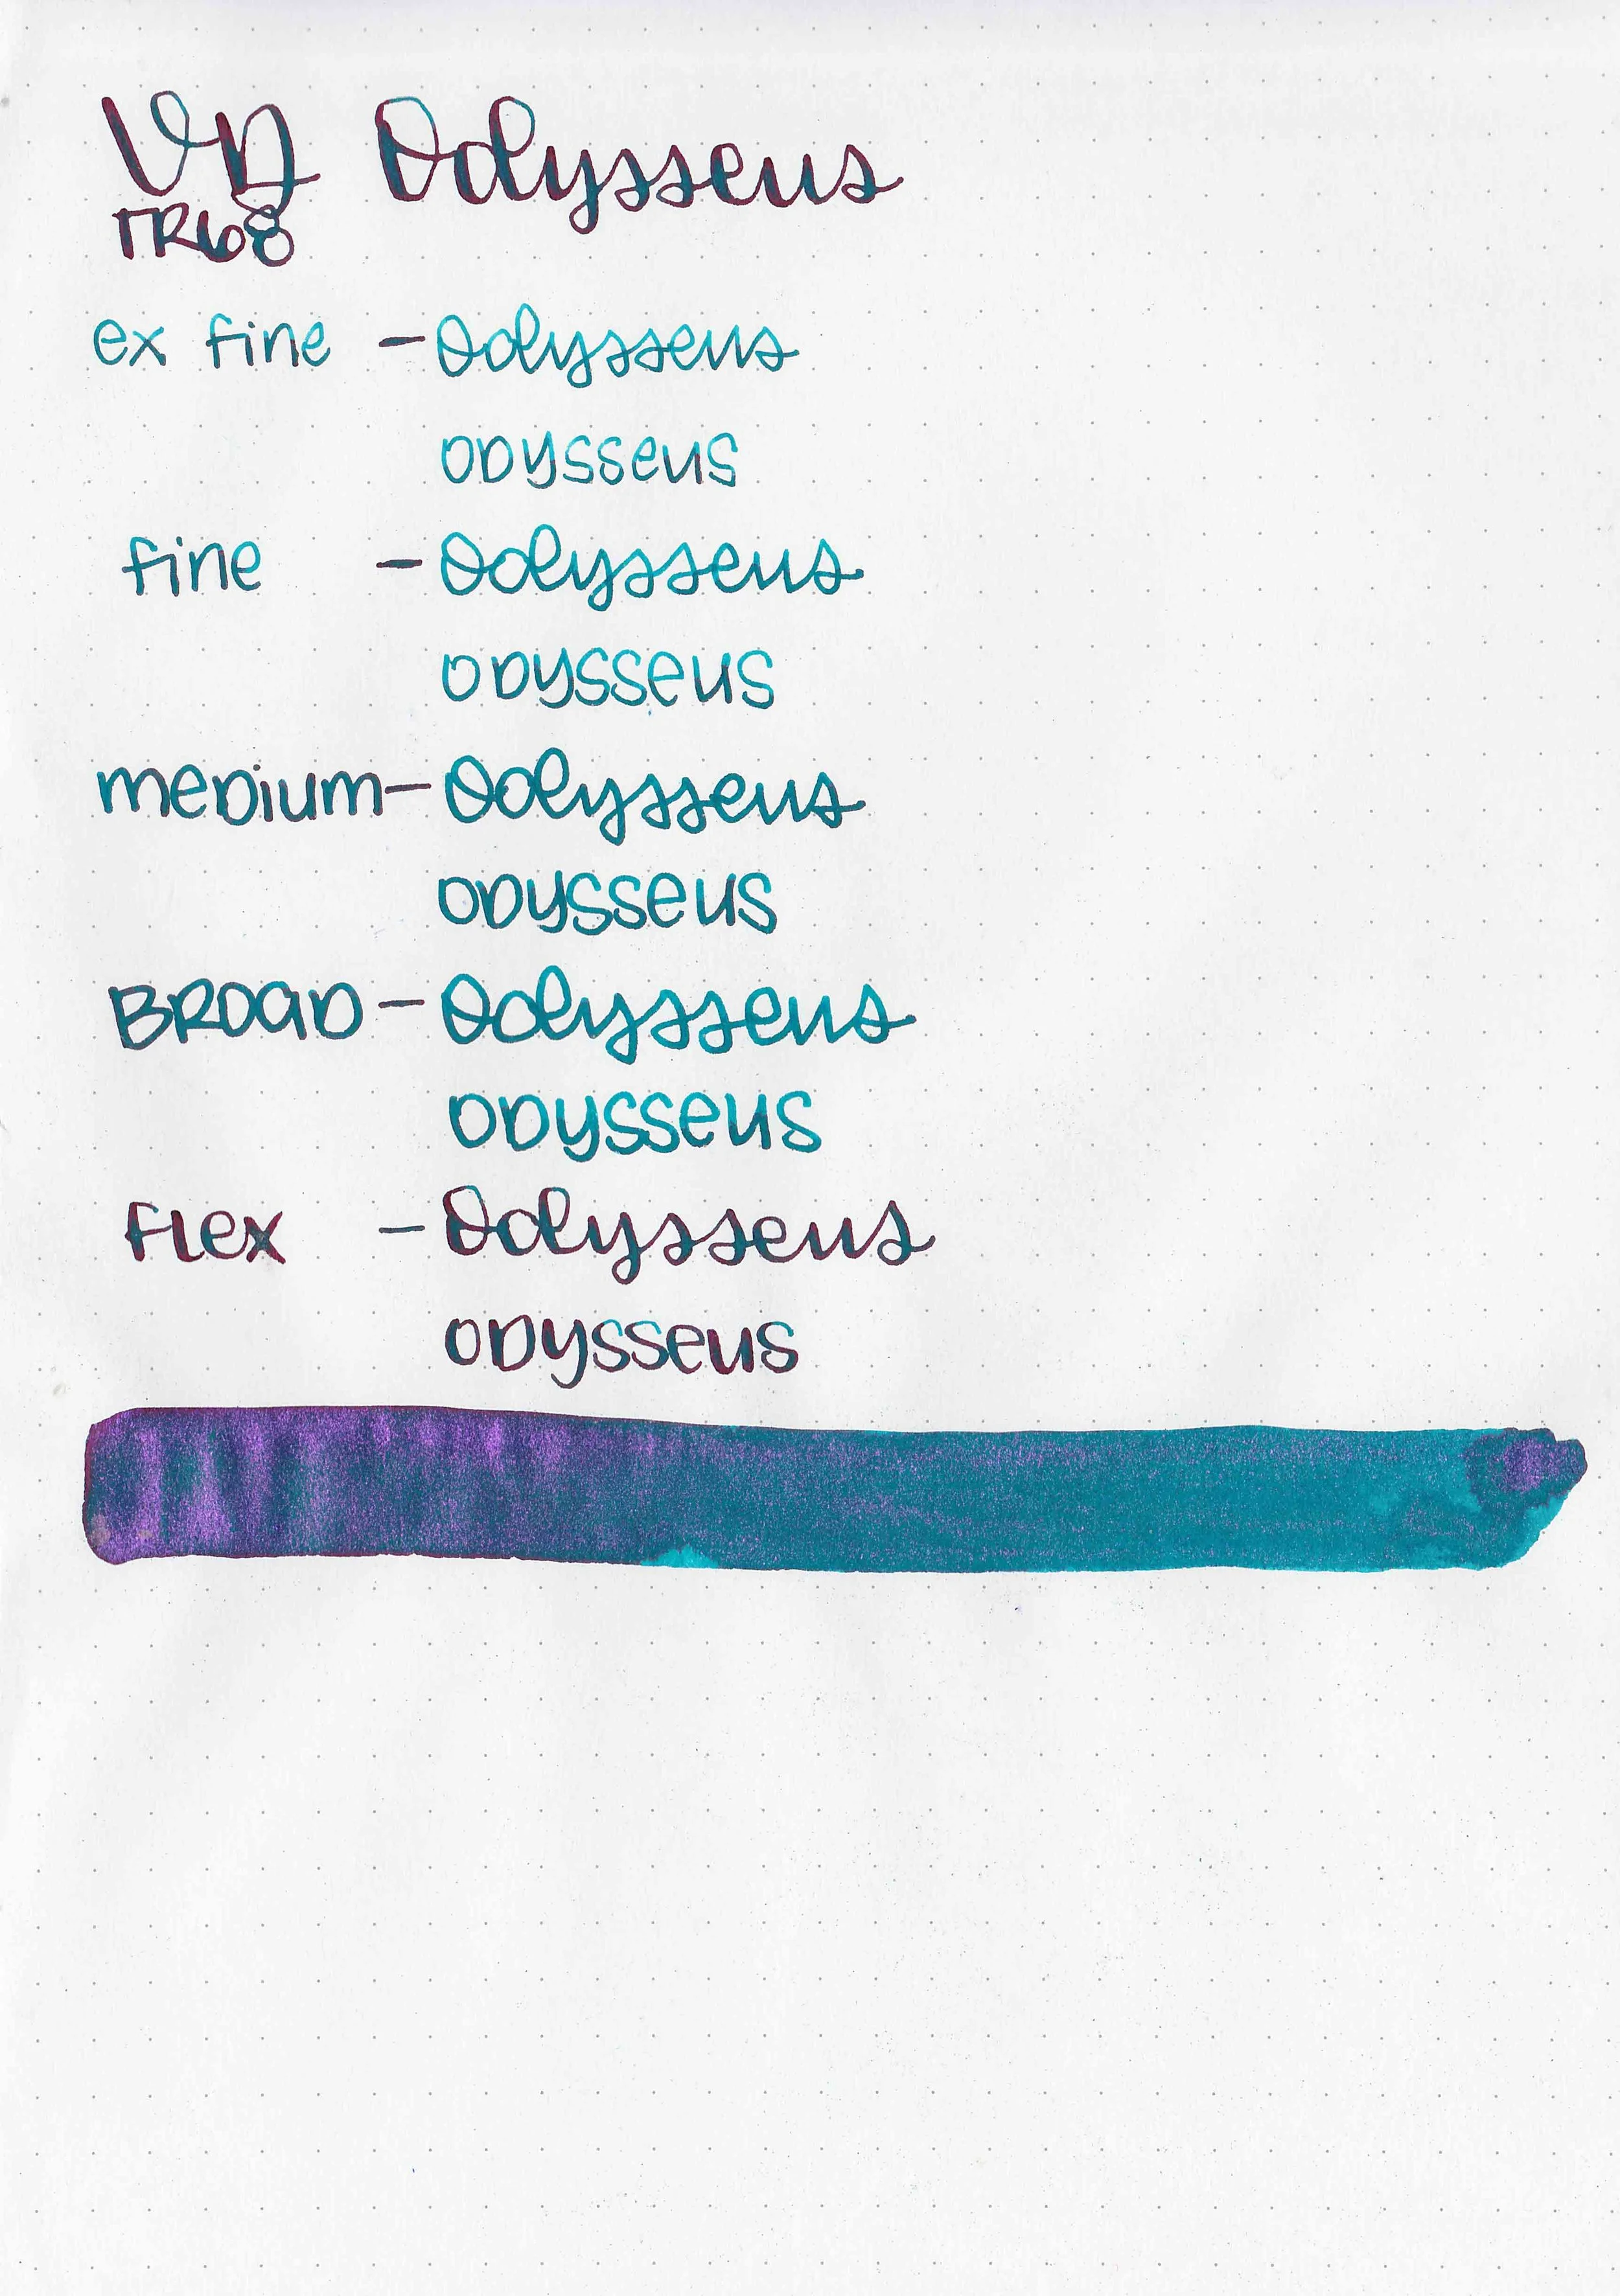 VD Odysseus
TR68
ex fine - Odysseus
ODYSSEUS
fine - Odysseus
ODYSSEUS
medium - Odysseus
ODYSSEUS
BROAD - Odysseus
ODYSSEUS
FLEX - Odysseus
ODYSSEUS